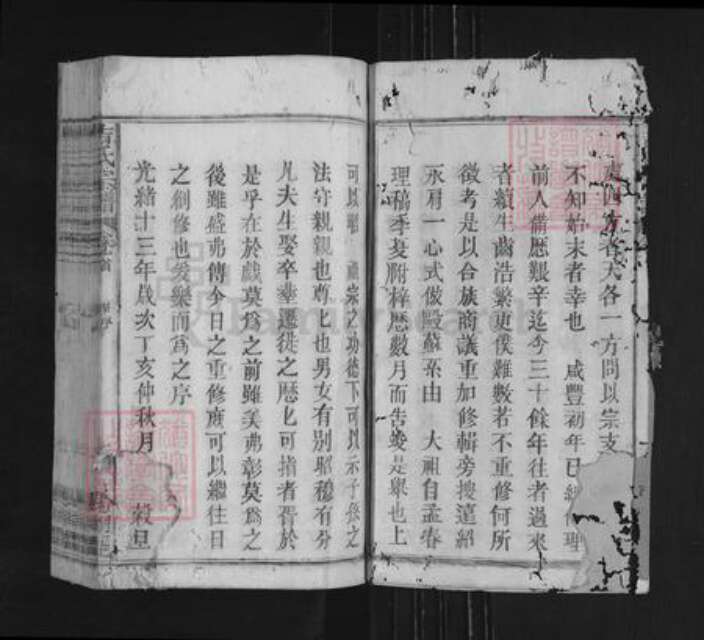 東西方各天各一方問以宗支
不知始末者幸也 咸豐初年已經修理
前人備歷艱辛迄今三十餘年往者過來
者續生齒浩繁更僕難數若不重修何所
徵考是以合族商議重加修輯旁搜遠紹
永肩一心式倣歐蘇系由 大祖自孟春
理稿季夏附梓歷數月而告竣是舉也上
可以 祖宗之功德下可以示子孫之
法守親親也尊尊也男女有別昭穆有分
凡夫生娶卒葬遷徙之歷七可指者胥於
是乎在於戲莫為之前雖美弗彰莫為之
後雖盛弗傳今日之重修庶可以繼往日
之創修也爰樂而為之序
光緒十三年歲次丁亥仲秋月 穀旦
氏宗譜 卷首